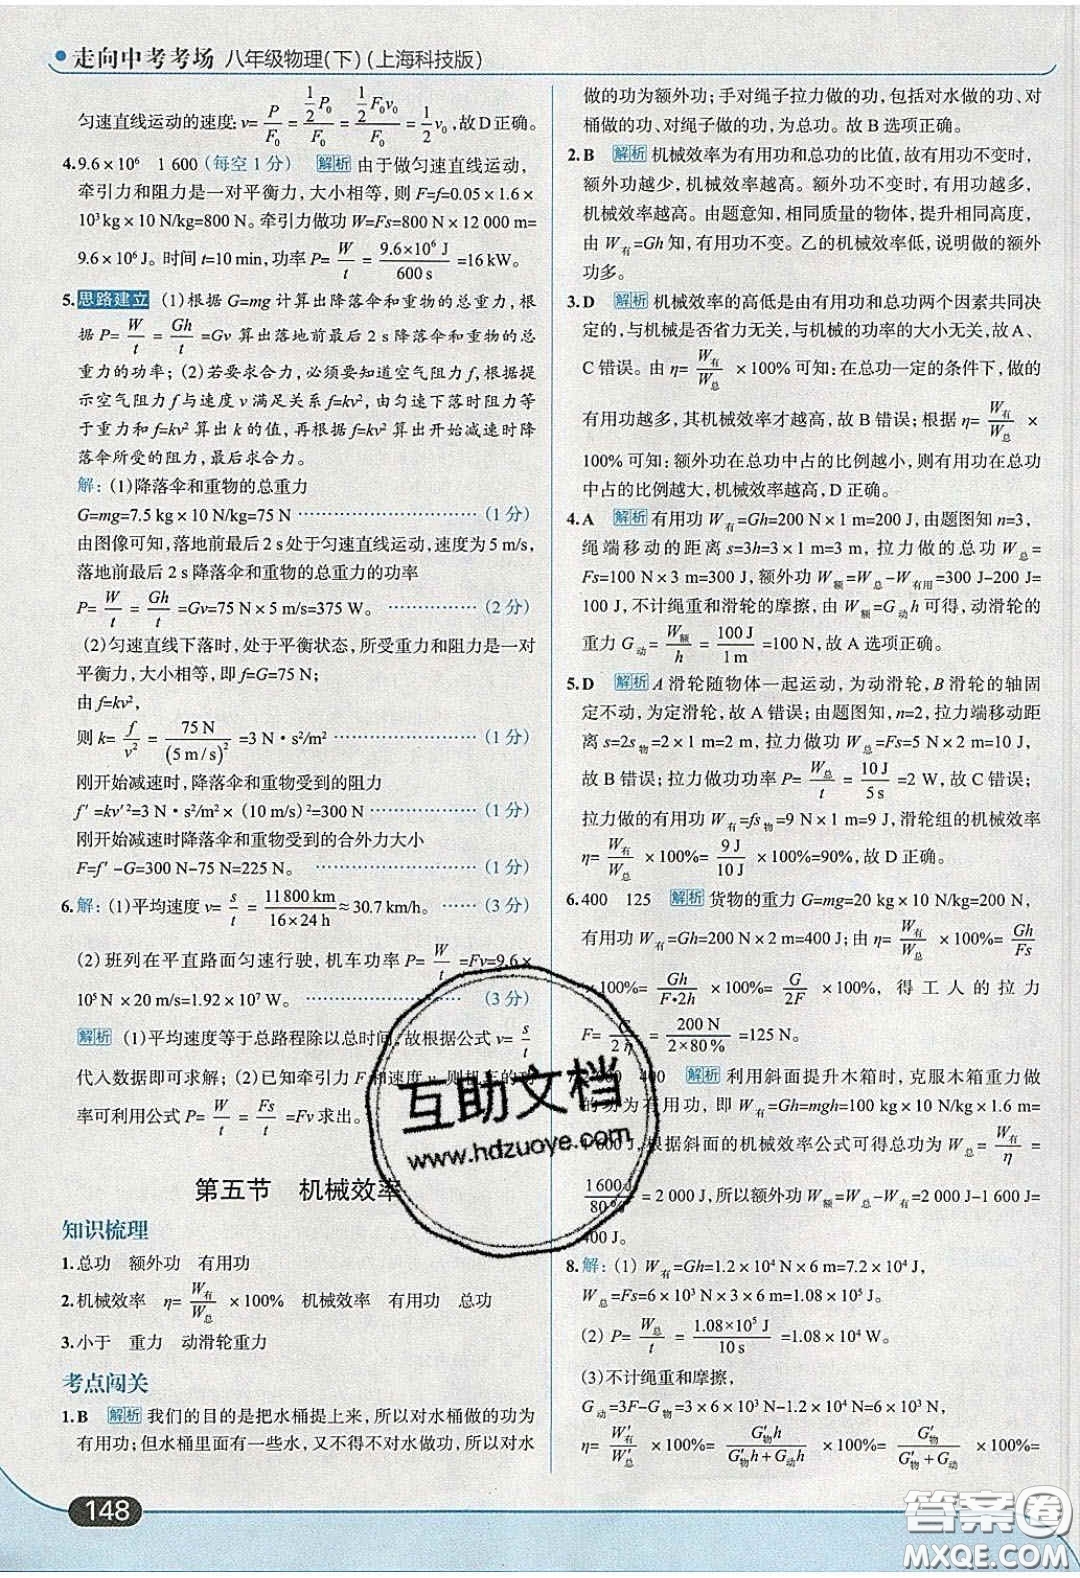 走向中考考场 八年级物理(下)(上海科技版)
匀速直线运动的速度:v=P/F₀=(1/2 P₀)/F₀=(1/2 F₀v₀)/F₀=1/2 v₀,故D正确。
4.9.6×10⁶ 1 600(每空1分) 解析 由于做匀速直线运动,
牵引力和阻力是一对平衡力,大小相等,则F=f=0.05×1.6×
10³ kg×10 N/kg=800 N。牵引力做功W=Fs=800 N×12 000 m=
9.6×10⁶ J。时间t=10 min,功率P=W/t=9.6×10⁶ J/600 s=16 kW。
5.思路建立 (1)根据G=mg计算出降落伞和重物的总重力,根
据P=W/t=Gh/t=Gv算出落地前最后2 s降落伞和重物的总
重力的功率;(2)若要求合力,必须要知道空气阻力f,根据提
示空气阻力f与速度v满足关系f=kv²,由匀速下落时阻力等
于重力和f=kv²算出k的值,再根据f=kv²算出开始减速时降
落伞所受的阻力,最后求合力。
解:(1)降落伞和重物的总重力
G=mg=7.5 kg×10 N/kg=75 N ……………………(1分)
由图像可知,落地前最后2 s处于匀速直线运动,速度为5 m/s,
落地前最后2 s降落伞和重物的总重力的功率
P=W/t=Gh/t=Gv=75 N×5 m/s=375 W。……………(2分)
(2)匀速直线下落时,处于平衡状态,所受重力和阻力是一对
平衡力,大小相等,即f=G=75 N;
由f=kv²,
则k=f/v²=75 N/(5 m/s)²=3 N·s²/m² ……………………(1分)
刚开始减速时,降落伞和重物受到的阻力
f′=kv′²=3 N·s²/m²×(10 m/s)²=300 N ……………(1分)
刚开始减速时降落伞和重物受到的合外力大小
F=f′-G=300 N-75 N=225 N。……………………(1分)
6.解:(1)平均速度v=s/t=11 800 km/16×24 h≈30.7 km/h。……(3分)
(2)班列在平直路面匀速行驶,机车功率P=W/t=Fv=9.6×
10⁵ N×20 m/s=1.92×10⁷ W。……………………(3分)
解析 (1)平均速度等于总路程除以总时间,故根据公式v=s/t
代入数据即可求解;(2)已知牵引力F和速度v,则机车的功
率可利用公式P=W/t=Fs/t=Fv求出。
第五节 机械效率
知识梳理
1.总功 额外功 有用功
2.机械效率 η=W有/W总×100% 机械效率 有用功 总功
3.小于 重力 动滑轮重力
考点闯关
1.B 解析 我们的目的是把水桶提上来,所以对水桶做的功为
有用功;但水桶里面有一些水,又不得不对水做功,所以对水
148
做的功为额外功;手对绳子拉力做的功,包括对水做的功、对
桶做的功、对绳子做的功,为总功。故B选项正确。
2.B 解析 机械效率为有用功和总功的比值,故有用功不变时,
额外功越少,机械效率越高。额外功不变时,有用功越多,
机械效率越高。由题意知,相同质量的物体,提升相同高度,
由W有=Gh知,有用功不变。乙的机械效率低,说明做的额外
功多。
3.D 解析 机械效率的高低是由有用功和总功两个因素共同决
定的,与机械是否省力无关,与机械的功率的大小无关,故A、
C错误。由η=W有/W总×100%可知:在总功一定的条件下,做的
有用功越多,其机械效率才越高,故B错误;根据η=W有/W总×
100%可知:额外功在总功中占的比例越小,则有用功在总功
中占的比例越大,机械效率越高,D正确。
4.A 解析 有用功W有=Gh=200 N×1 m=200 J,由题图知n=3,
绳端移动的距离s=3h=3×1 m=3 m,拉力做的总功W总=
Fs=100 N×3 m=300 J,额外功W额=W总-W有用=300 J-200 J=
100 J,不计绳重和滑轮的摩擦,由W额=G动h可得,动滑轮的
重力G动=W额/h=100 J/1 m=100 N,故A选项正确。
5.D 解析 A滑轮随物体一起运动,为动滑轮,B滑轮的轴固
定不动,为定滑轮,故A错误;由题图知,n=2,拉力端移动距
离s=2s物=2×1 m=2 m,拉力做功W总=Fs=5 N×2 m=10 J,
故B错误;拉力做功功率P=W总/t=10 J/5 s=2 W,故C错误;
拉力做的有用功W有=fs物=9 N×1 m=9 J,滑轮组的机械效率
η=W有/W总×100%=9 J/10 J×100%=90%,故D正确。
6.400 125 解析 货物的重力G=mg=20 kg×10 N/kg=200 N,
有用功W有=Gh=200 N×2 m=400 J;由η=W有/W总×100%=Gh/Fs
×100%=Gh/F·2h×100%=G/2F×100%,得工人的拉力
F=G/2η=200 N/2×80%=125 N。
400 解析 利用斜面提升木箱时,克服木箱重力做
的功为有用功,即W有=Gh=mgh=100 kg×10 N/kg×1.6 m=
600 J,根据斜面的机械效率公式可得总功为W总=W有/η=
1 600 J/80%=2 000 J,所以额外功W额=W总-W有=2 000 J-1 600 J=
400 J。
8.解:(1)W有=Gh=1.2×10⁴ N×6 m=7.2×10⁴ J,
W总=Fs=6×10³ N×3×6 m=1.08×10⁵ J。
(2)P=W总/t=1.08×10⁵ J/10 s=1.08×10⁴ W。
(3)不计绳重和摩擦,
G动=3F-G物=3×6×10³ N-1.2×10⁴ N=6×10³ N,
η=W′有/W′总×100%=G′物h/G′物h+G动h×100%=G′物/G′物+G动×100%=
互助文档
www.hdzuoye.com
答案圈
MXQE.COM